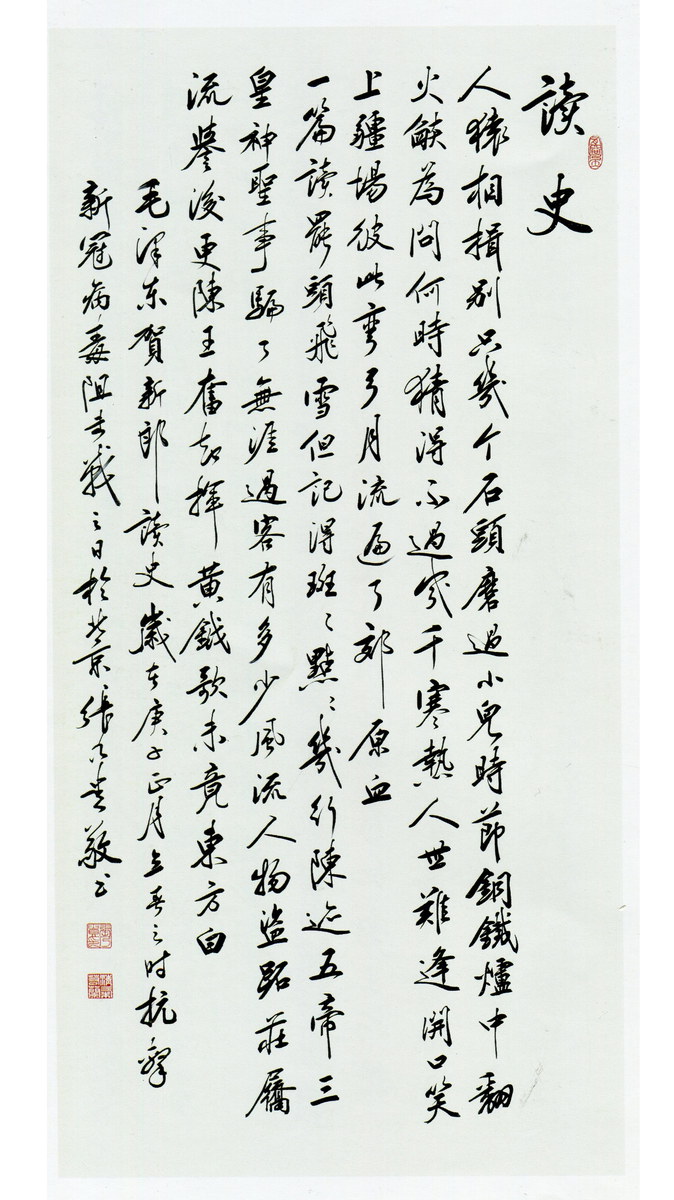 讀史
人猿相揖別只幾个石頭磨過小兒時節銅鐵爐中翻
火燄為問何時猜得不過幾千寒熱人世難逢開口笑
上疆場彼此彎弓月流遍了郊原血
一篇讀罷頭飛雪但記得斑〻點〻幾行陳迹五帝三
皇神聖事騙了無涯過客有多少風流人物盜跖莊屩
流譽後更陳王奮起揮黃鉞歌未竟東方白
毛澤东賀新郎讀史歲在庚子正月立春之时抗擊
新冠病毒阻击戰之日於北京張敬书